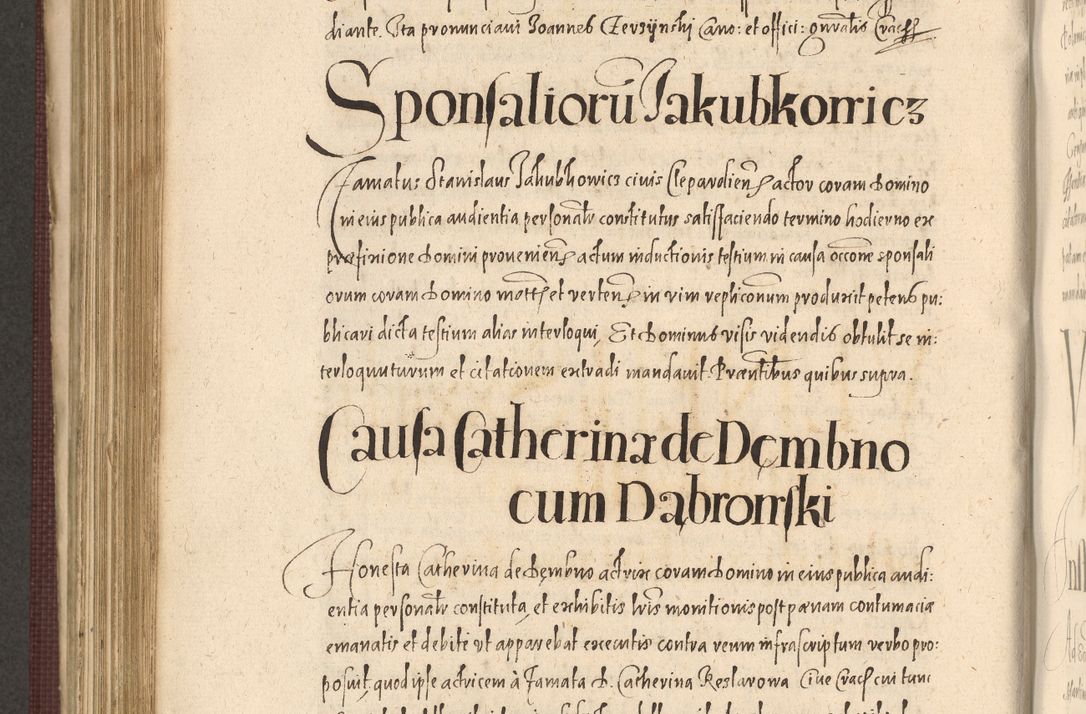 diante. Ita pronunciavi Joannes Cerzÿnski Cano: et offici: gnralis Crac
Sponsalioru Jakubkowicz
Famatus Stanislaus Jakubkowicz civis Clepardien actor coram Domino
in eius publica audientia personalr constitutus satisfaciendo termino hodierno ex
præfinione Domini provenien actum inductionis testium in causa occone sponsali
orum coram Domino mott et verten in vim repliconum produxit petens pu:
blicari dicta testium alias interloqui, Et Dominus visis videndis obtulit se in:
terloquuturum et citationem extradi mandavit. Præntibus quibus supra.
Causa Catherinæ de Dęmbno
cum Dąbrowski
Honesta Catherina de Dęmbno actrix coram Domino in eius publica audi:
entia personalr constituta, et exhibitis lris monitionis post pænam contumaciæ
emanatis et debite ut apparebat executis contra reum infrascriptum verbo pro:
posuit, quod ipse actricem à Famata D. Catherina Keslarowa Cive Crac cui tunc